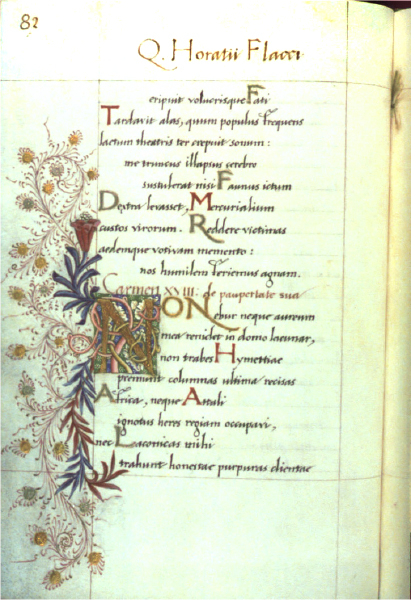 82
Q. Horatii Flacci
eripuit volucrisque Fati
Tardavit alas, quum populus frequens
laetum theatris ter crepuit sonum:
me truncus illapsus cerebro
sustulerat nisi Faunus ictum
Dextra levasset, Mercurialium
custos virorum. Reddere victimas
aedemque votivam memento:
nos humilem feriemus agnam.
Carmen XVIII: de paupertate sua
NON ebur neque aureum
mea renidet in domo lacunar,
non trabes Hymettiae
premunt columnas ultima recisas
Africa, neque Attali
ignotus heres regiam occupavi,
nec Laconicas mihi
trahunt honestae purpuras clientae